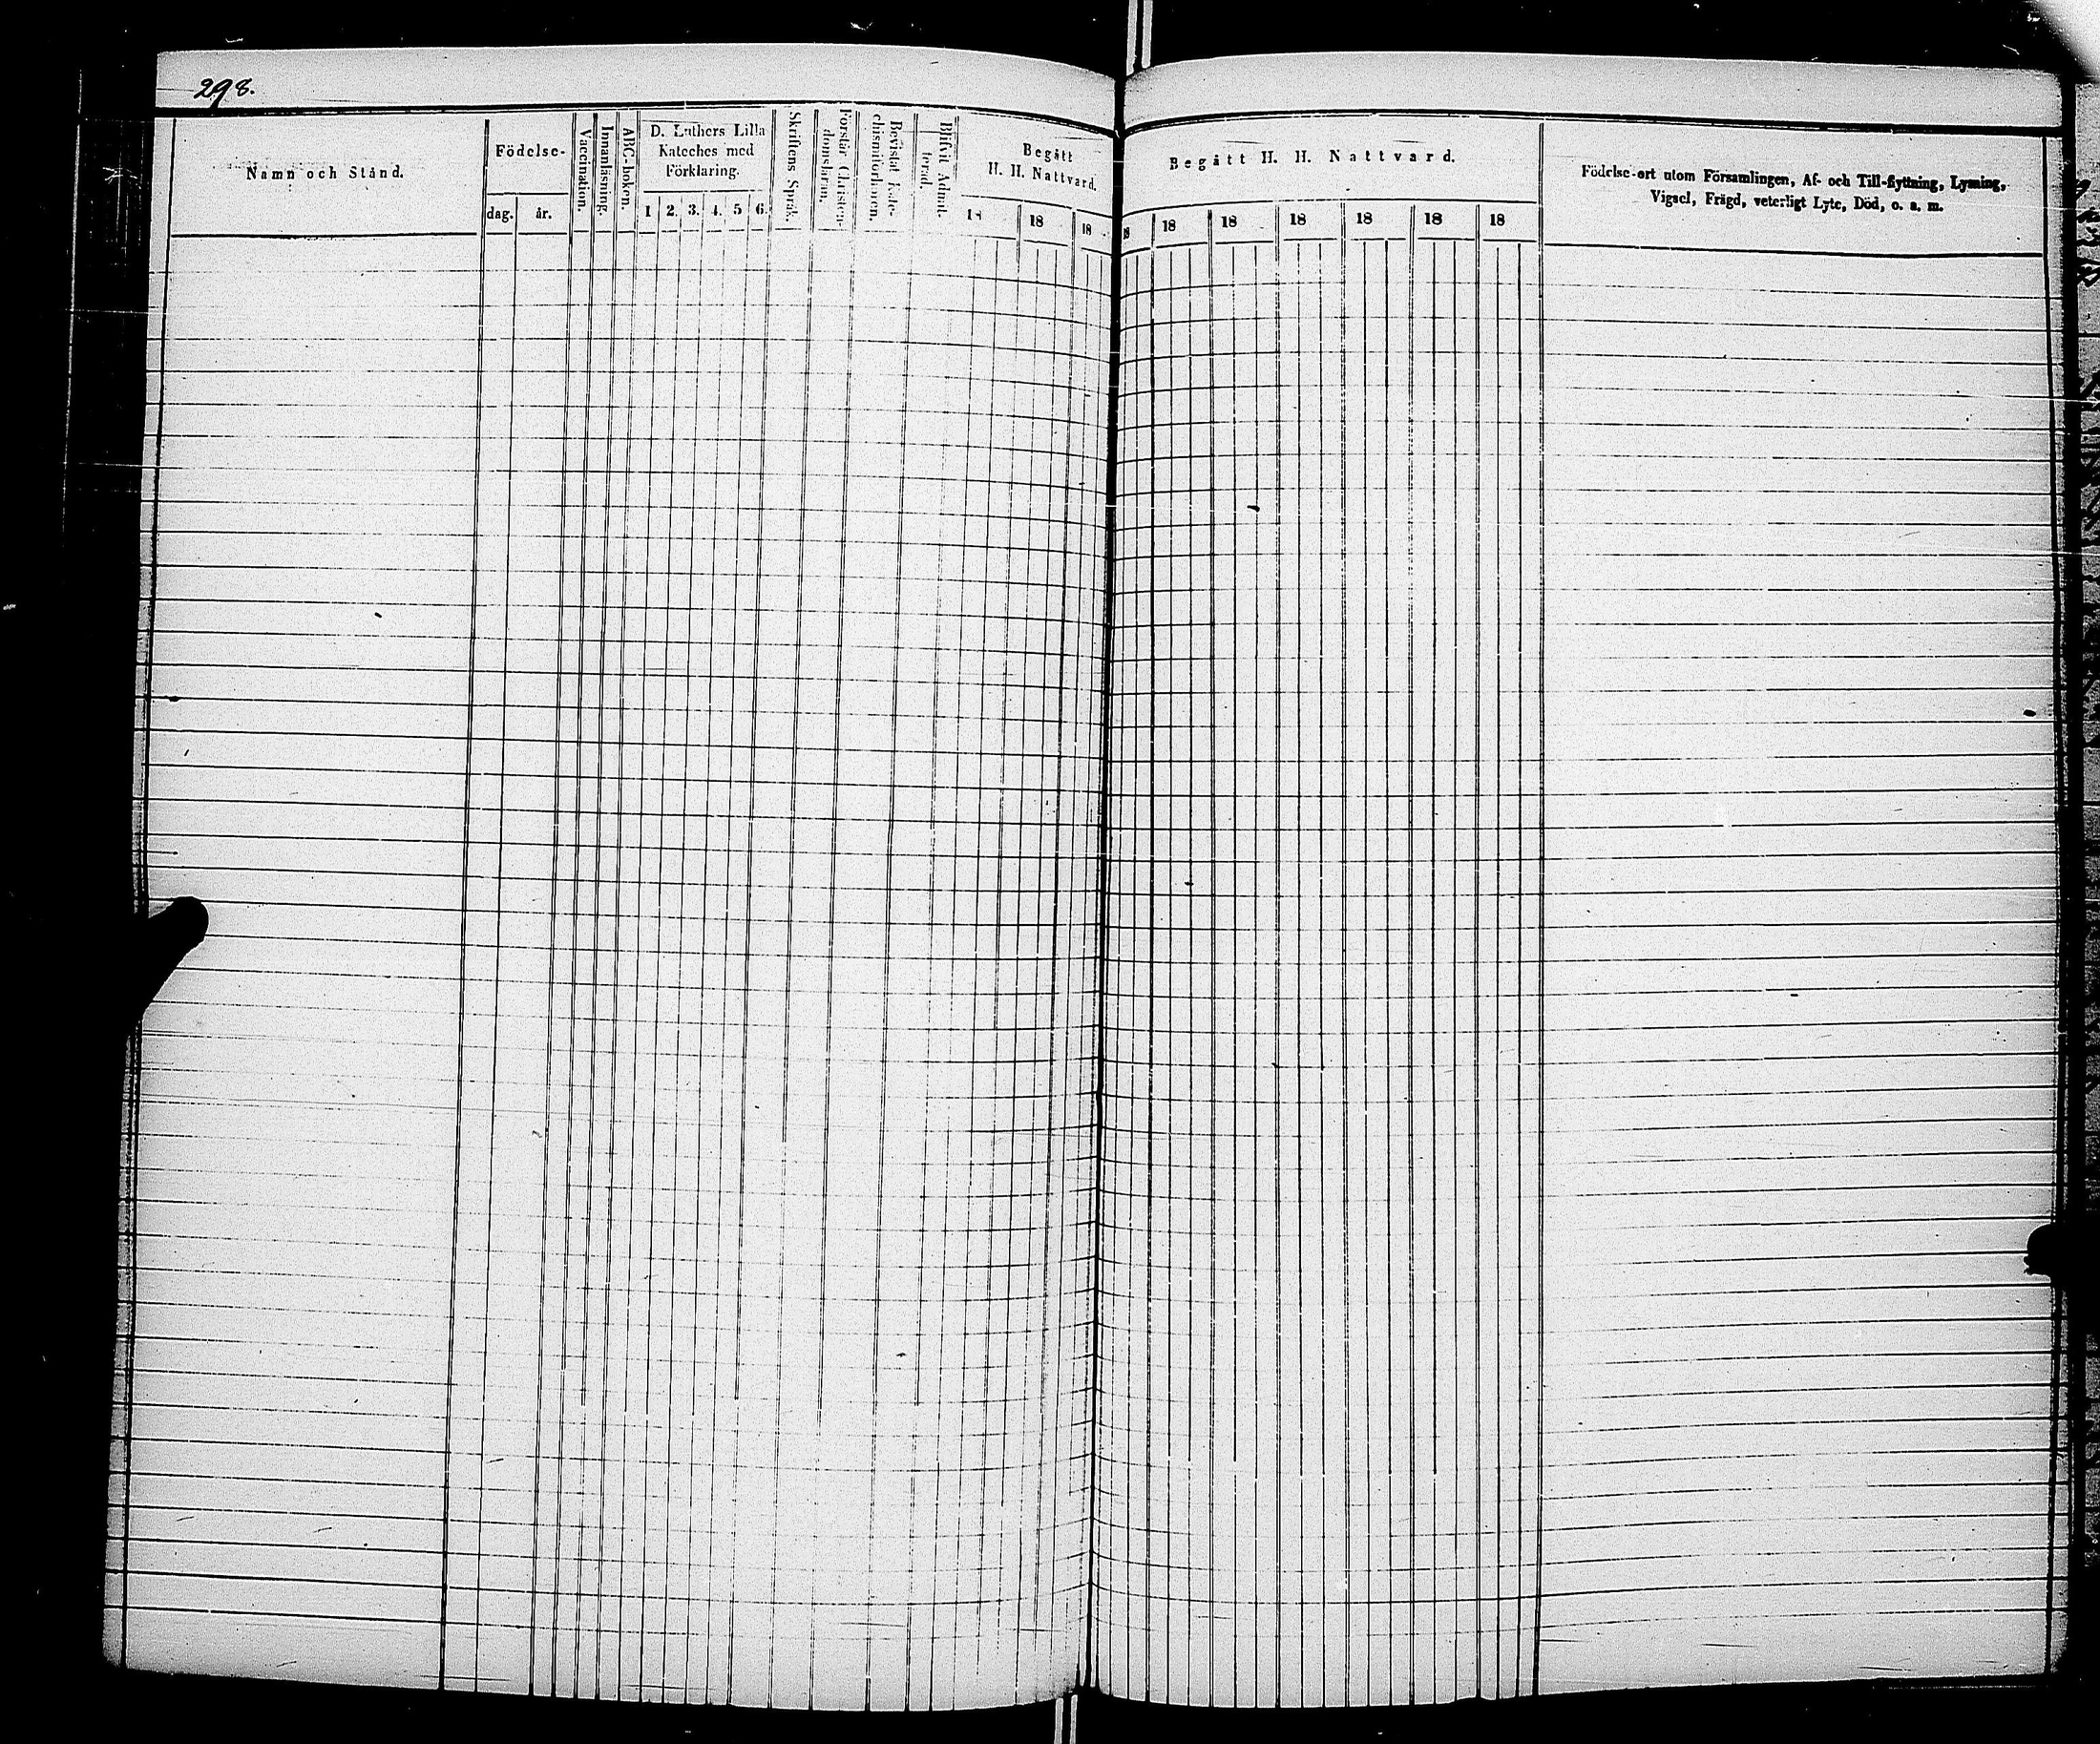 298.
Namn och Stånd.
Födelse-
dag.
år.
Vaccination.
Innanläsning.
ABC-boken.
D. Luthers Lilla
Kateches med
Förklaring.
1 2. 3. 4. 5 6.
Skriftens Språk.
Förstår Christen-
domsläran.
Bevistat Kate-
chismiförhören.
Blifvit Admit-
terad.
Begått
H. H. Nattvard.
18 18 18
Begått H. H. Nattvard.
18 18 18 18 18 18 18
Födelse-ort utom Församlingen, Af- och Till-flyttning, Lysning,
Vigsel, Frägd, veterligt Lyte, Död, o. s. m.